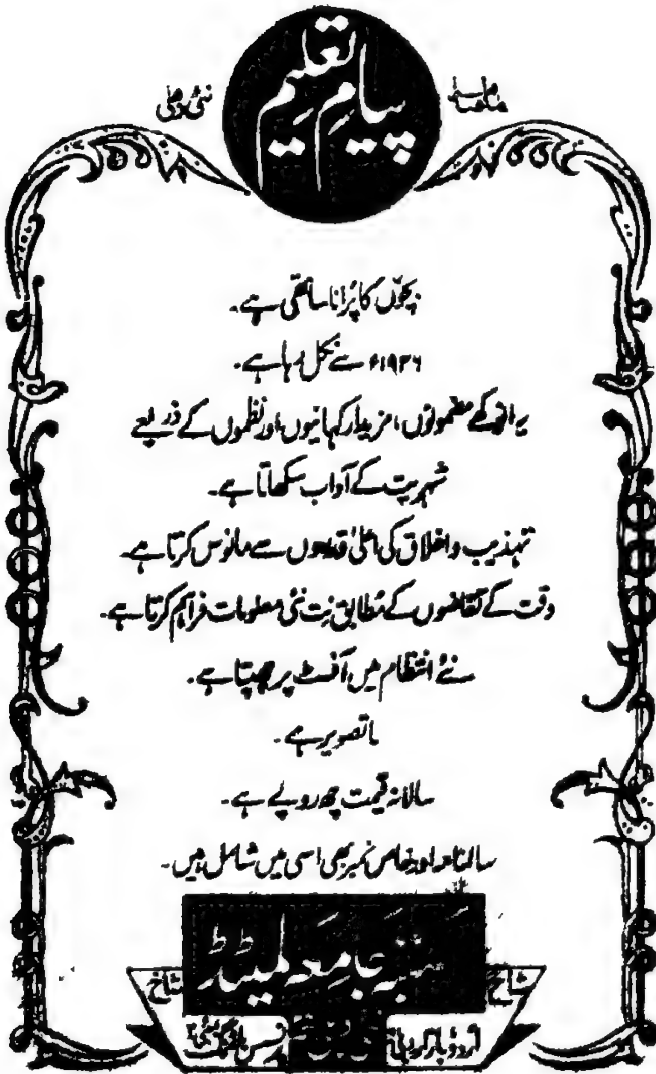 ماہنامہ پیام تعلیم نئی دہلی
بچّوں کا پُرانا ساتھی ہے۔
۱۹۲۶ء سے نکل رہا ہے۔
یہ اچھے مضمونوں، مزیدار کہانیوں اور نظموں کے ذریعے
شہریت کے آداب سکھاتا ہے۔
تہذیب و اخلاق کی اعلیٰ قدروں سے مانوس کرتا ہے۔
وقت کے تقاضوں کے مُطابق نِت نئی معلومات فراہم کرتا ہے۔
نئے انتظام میں آفسٹ پر چھپتا ہے۔
باتصویر ہے۔
سالانہ قیمت چھ روپے ہے۔
سالنامہ اور خاص نمبر بھی اسی میں شامل ہیں۔
مکتبہ جامعہ لمیٹڈ
شاخ شاخ
اُردو بازار دہلی نئی دہلی پرنسس بلڈنگ بمبئی